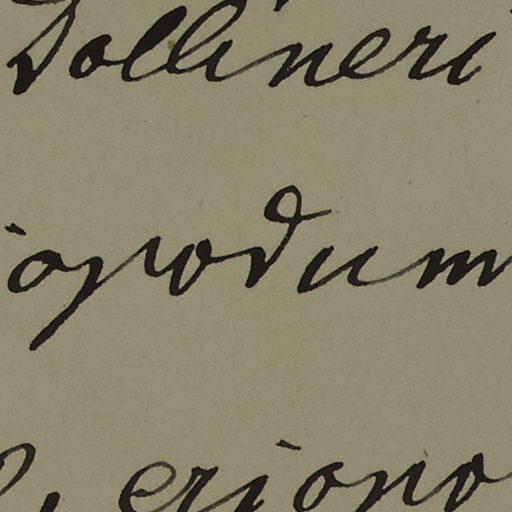 Dollineri
iopodum
eriopo